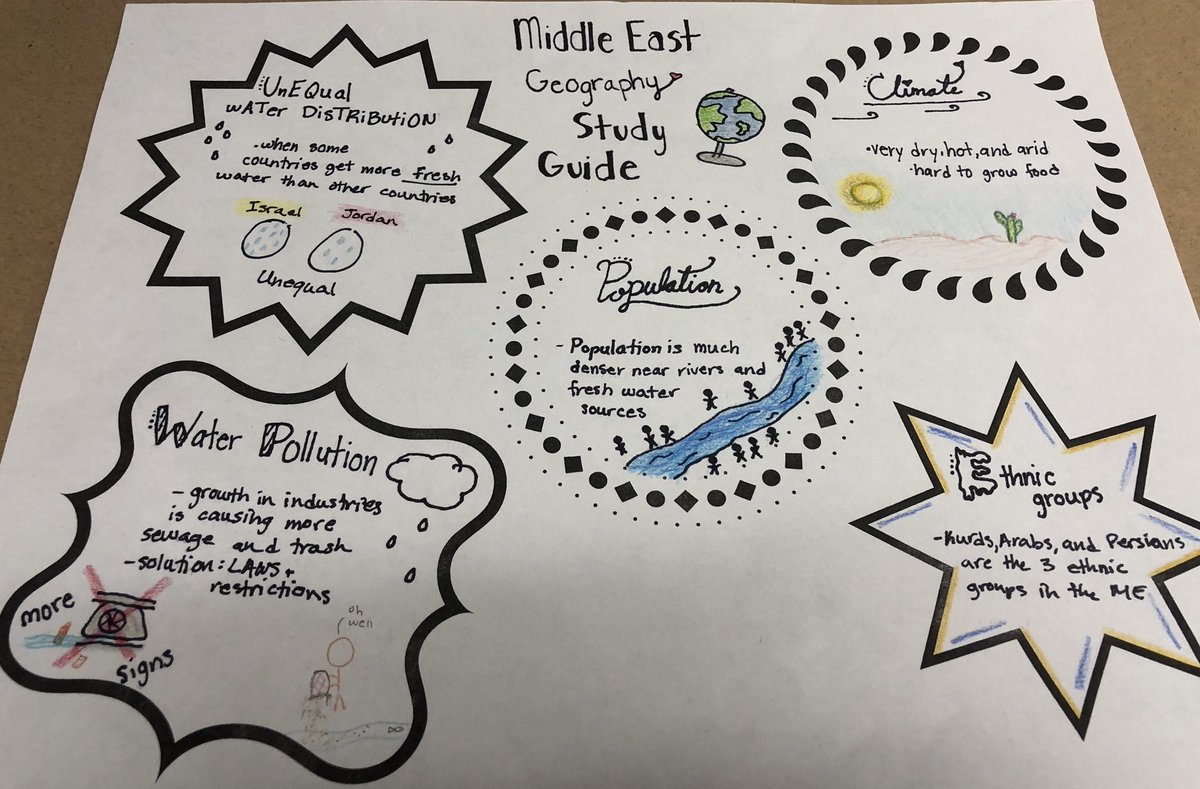 Middle East
Geography
Study
Guide
UnEQual
wATer DisTRiButiON
-when some
countries get more fresh
water than other countries
Israel Jordan
Unequal
Climate
•very dry, hot, and arid
•hard to grow food
Population
- Population is much
denser near rivers and
fresh water
sources
Water Pollution
- growth in industries
is causing more
sewage and trash
-solution: LAWS +
restrictions
more
signs
oh
well
Ethnic
groups
-Kurds, Arabs, and Persians
are the 3 ethnic
groups in the ME